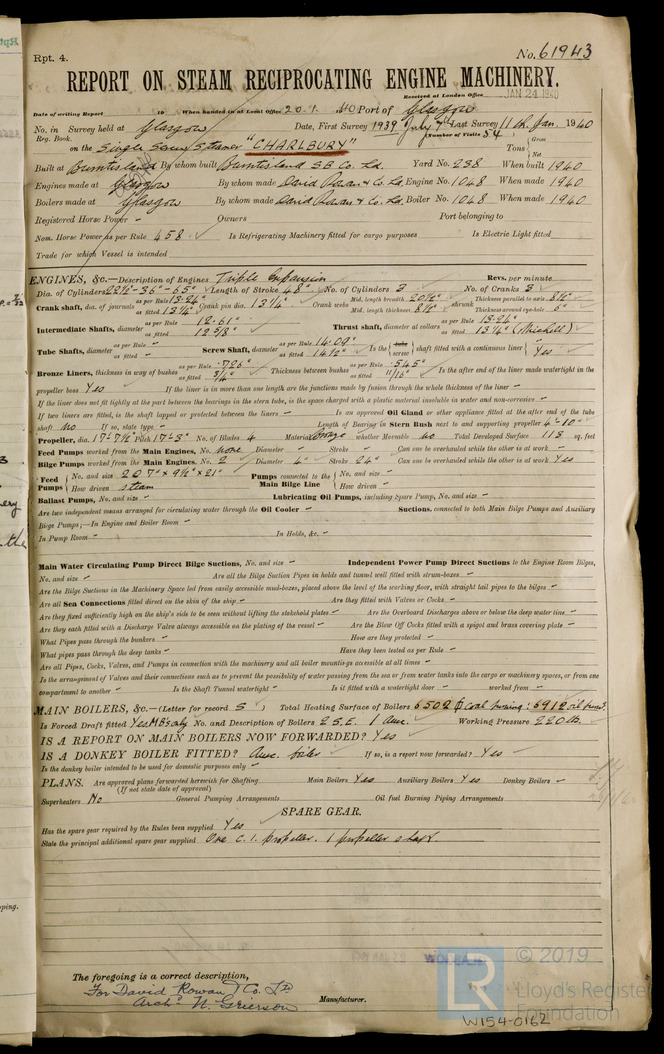 Rpt. 4. No. 61943
REPORT ON STEAM RECIPROCATING ENGINE MACHINERY.
Received at London Office JAN 24 1940
Date of writing Report 19 When handed in at Local Office 20.1.40 Port of Glasgow
No. in Survey held at Glasgow Date, First Survey 1939 July 7th Last Survey 11th Jan. 1940
Reg. Book. Number of Visits 54
on the Single Screw Steamer "CHARLBURY" Tons Gross Net
Built at Burntisland By whom built Burntisland S.B. Co. Ld. Yard No. 238 When built 1940
Engines made at Glasgow By whom made David Rowan & Co. Ld. Engine No. 1048 When made 1940
Boilers made at Glasgow By whom made David Rowan & Co. Ld. Boiler No. 1048 When made 1940
Registered Horse Power - Owners Port belonging to
Nom. Horse Power as per Rule 458 Is Refrigerating Machinery fitted for cargo purposes Is Electric Light fitted
Trade for which Vessel is intended
ENGINES, &c.—Description of Engines Triple Expansion Revs. per minute
Dia. of Cylinders 22½"-36"-65" Length of Stroke 48" No. of Cylinders 3 No. of Cranks 3
Crank shaft, dia. of journals as per Rule 13.24" as fitted 13¼" Crank pin dia. 13¼" Crank webs Mid. length breadth 20½" Mid. length thickness 8½" shrunk Thickness parallel to axis 8½" Thickness around eye-hole 6"
Intermediate Shafts, diameter as per Rule 12.61" as fitted 12⅝" Thrust shaft, diameter at collars as per Rule 13.24" as fitted 13¼" (Michell)
Tube Shafts, diameter as per Rule - as fitted - Screw Shaft, diameter as per Rule 14.09" as fitted 14½" Is the tube screw shaft fitted with a continuous liner Yes
Bronze Liners, thickness in way of bushes as per Rule .726" as fitted ¾" Thickness between bushes as per Rule .545" as fitted 11/16" Is the after end of the liner made watertight in the
propeller boss Yes If the liner is in more than one length are the junctions made by fusion through the whole thickness of the liner -
If the liner does not fit tightly at the part between the bearings in the stern tube, is the space charged with a plastic material insoluble in water and non-corrosive -
If two liners are fitted, is the shaft lapped or protected between the liners - Is an approved Oil Gland or other appliance fitted at the after end of the tube
shaft No If so, state type - Length of Bearing in Stern Bush next to and supporting propeller 4'-10"
Propeller, dia. 17'-7½" Pitch 17'-3" No. of Blades 4 Material Bronze whether Moveable no Total Developed Surface 113 sq. feet
Feed Pumps worked from the Main Engines, No. none Diameter - Stroke - Can one be overhauled while the other is at work -
Bilge Pumps worked from the Main Engines, No. 2 Diameter 4" Stroke 24" Can one be overhauled while the other is at work Yes
Feed Pumps No. and size 2 @ 7" x 9½" x 21" How driven steam Pumps connected to the Main Bilge Line No. and size - How driven -
Ballast Pumps, No. and size - Lubricating Oil Pumps, including Spare Pump, No. and size -
Are two independent means arranged for circulating water through the Oil Cooler - Suctions, connected to both Main Bilge Pumps and Auxiliary
Bilge Pumps;—In Engine and Boiler Room -
In Pump Room - In Holds, &c. -
Main Water Circulating Pump Direct Bilge Suctions, No. and size - Independent Power Pump Direct Suctions to the Engine Room Bilges,
No. and size - Are all the Bilge Suction Pipes in holds and tunnel well fitted with strum-boxes -
Are the Bilge Suctions in the Machinery Space led from easily accessible mud-boxes, placed above the level of the working floor, with straight tail pipes to the bilges -
Are all Sea Connections fitted direct on the skin of the ship - Are they fitted with Valves or Cocks -
Are they fixed sufficiently high on the ship's side to be seen without lifting the stokehold plates - Are the Overboard Discharges above or below the deep water line -
Are they each fitted with a Discharge Valve always accessible on the plating of the vessel - Are the Blow Off Cocks fitted with a spigot and brass covering plate -
What Pipes pass through the bunkers - How are they protected -
What pipes pass through the deep tanks - Have they been tested as per Rule -
Are all Pipes, Cocks, Valves, and Pumps in connection with the machinery and all boiler mountings accessible at all times -
Is the arrangement of Valves and their connections such as to prevent the possibility of water passing from the sea or from water tanks into the cargo or machinery spaces, or from one
compartment to another - Is the Shaft Tunnel watertight - Is it fitted with a watertight door - worked from -
MAIN BOILERS, &c.—(Letter for record S) Total Heating Surface of Boilers 6502 coal burning: 6912 oil burng.
Is Forced Draft fitted Yes MBs only No. and Description of Boilers 2 S.E. 1 Aux. Working Pressure 220 lb.
IS A REPORT ON MAIN BOILERS NOW FORWARDED? Yes
IS A DONKEY BOILER FITTED? Aux. boiler If so, is a report now forwarded? Yes
Is the donkey boiler intended to be used for domestic purposes only -
PLANS. Are approved plans forwarded herewith for Shafting Main Boilers Yes Auxiliary Boilers Yes Donkey Boilers -
(If not state date of approval)
Superheaters No General Pumping Arrangements Oil fuel Burning Piping Arrangements
SPARE GEAR.
Has the spare gear required by the Rules been supplied Yes
State the principal additional spare gear supplied One C.I. propeller. 1 propeller shaft.
The foregoing is a correct description,
For David Rowan & Co. Ld
Archd N. Grierson
Manufacturer.
© 2019
LR
Lloyd's Register
Foundation
W154-0162